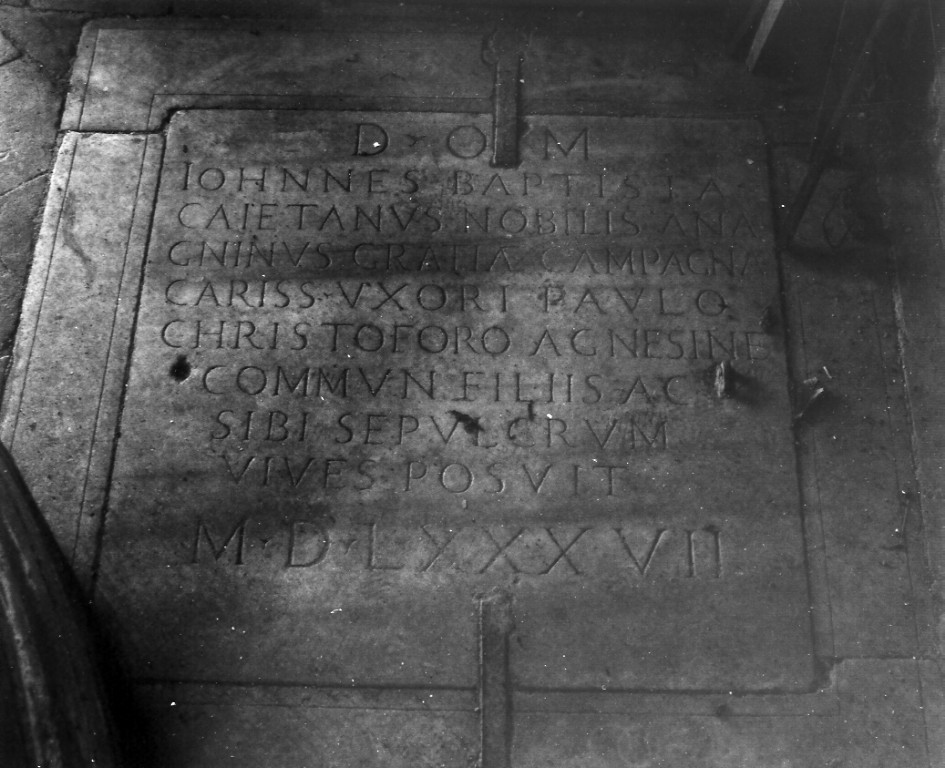 D · O · M
IOHNNES BAPTISTA
CAIETANVS NOBILIS ANA
GNINVS GRATIIA CAMPAGNA
CARISS · VXORI PAVLO
CHRISTOFORO AGNESINE
COMMVN FILIIS AC
SIBI SEPVLCRVM
VIVES POSVIT
M · D · LXXXVII